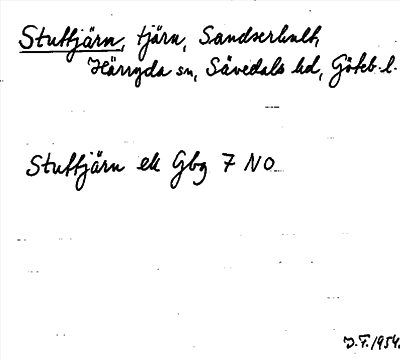 Stuttjärn, tjärn, Sandserhult,
Härryda sn, Sävedals hd, Göteb. l.
Stuttjärn ek Gbg 7 NO
J.F. 1954.